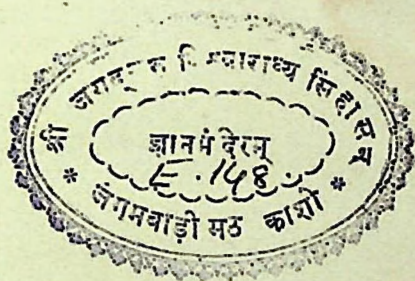 श्री जगद्गुरु विश्वाराध्य सिंहासन
ज्ञानमंदिरम्
E.148.
* जंगमवाड़ी मठ काशी *